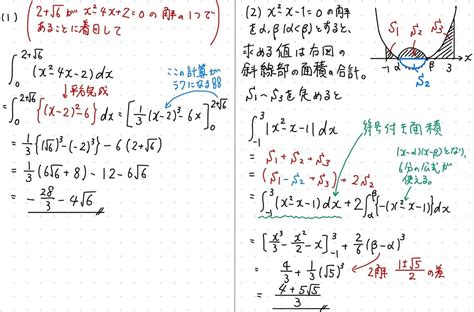 (1) (2+√6 が x²-4x+2=0 の解の1つで
あることに着目して)
∫₀^{2+√6} (x²-4x-2)dx
↓平方完成
この計算が
ラクになる
= ∫₀^{2+√6} {(x-2)²-6}dx = [1/3 (x-2)³-6x]₀^{2+√6}
= 1/3{(√6)³-(-2)³}-6(2+√6)
= 1/3(6√6+8)-12-6√6
= -28/3-4√6
(2) x²-x-1=0 の解
を α, β (α<β) とすると、
求める値は右図の
斜線部の面積の合計。
S₁ S₃
-1 α β 3 x
S₂
S₁~S₃を定めると
∫₋₁³ |x²-x-1|dx
= S₁+S₂+S₃
符号付き面積
= (S₁-S₂+S₃)+2S₂
(x-α)(x-β)となり、
6分の公式が
使える。
= ∫₋₁³(x²-x-1)dx+2∫_α^β{-(x²-x-1)}dx
= [x³/3-x²/2-x]₋₁³+2/6(β-α)³
= 4/3+1/3(√5)³
2解 1±√5/2 の差
= 4+5√5/3